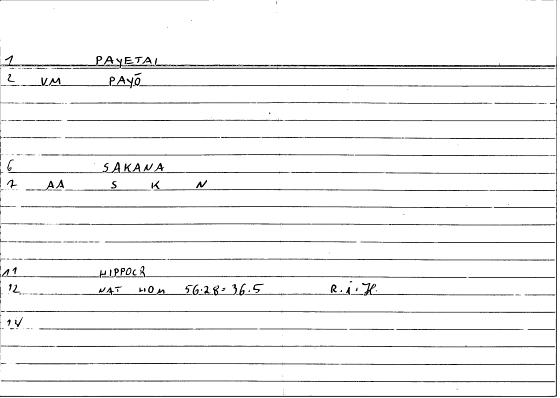 1 PAYETAI
2 VM PAYŌ
6 SAKANA
7 AA S K N
11 HIPPOCR
12 NAT HOM 56.28=36.5 R.i.H.
14